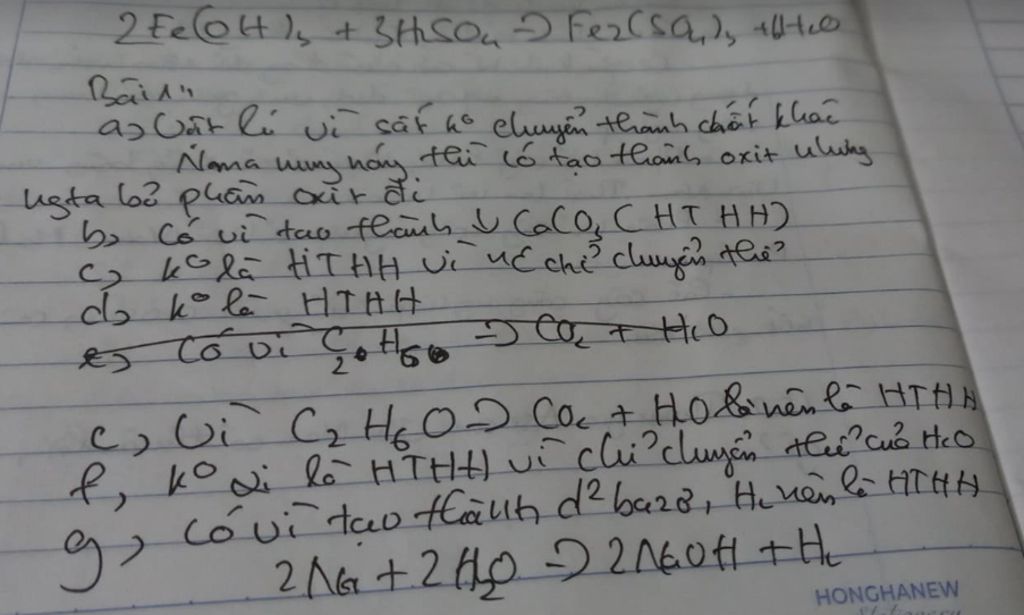 2Fe(OH)3 + 3H2SO4 → Fe2(SO4)3 + H2O
Bài 1"
a, Vật lí vì sắt k° chuyển thành chất khác
nung nóng thì có tạo thành oxit nhưng
ngta bỏ phần oxit đi
b, Có vì tạo thành ↓ CaCO3 (HTHH)
c, k° là HTHH vì nó chỉ chuyển thể
d, k° là HTHH
e, Có vì C2H6O → CO2 + H2O
e, Vì C2H6O → CO2 + H2O nên là HTHH
f, k° là HTHH vì chỉ chuyển thể của H2O
g, có vì tạo thành d² bazơ, H2 nên là HTHH
2Na + 2H2O → 2NaOH + H2
HONGHANEW